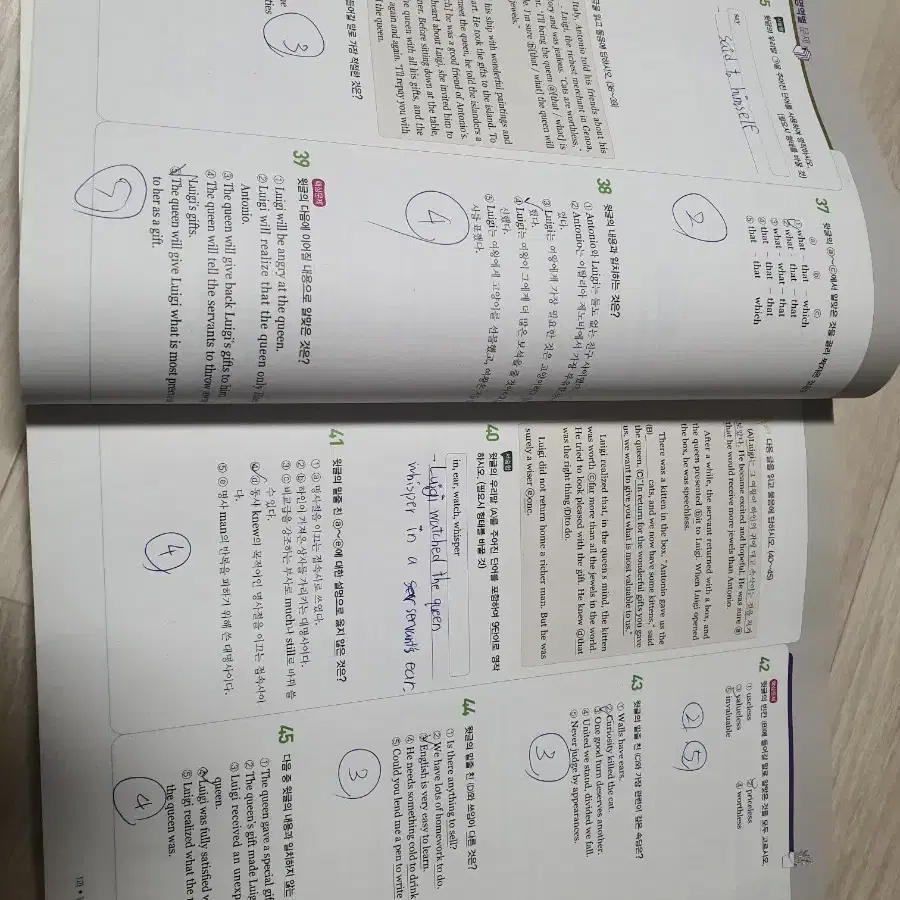 5
said to himself
[36~39]
Italy, Antonio told his friends about his
- Luigi, the richest merchant in Genoa,
ory and was jealous. "Cats are worthless,"
t. "I'll bring the queen ⓐ[that / what] is
le. I'm sure ⓑ[that / what] the queen will
jewels."
his ship with wonderful paintings and
art. He took the gifts to the island. To
meet the queen, he told the islanders a
he was a good friend of Antonio's.
heard about Luigi, she invited him to
ner. Before sitting down at the table,
he queen with all his gifts, and the
again and again. "I'll repay you with
the queen.
들어갈 말로 가장 적절한 것은?
③
37 윗글의 ⓐ~ⓒ에서 알맞은 것을 골라
ⓐ ⓑ ⓒ
① what - that - which
② what - that - that
③ what - what - that
④ that - that - that
⑤ that - that - which
2
38 윗글의 내용과 일치하는 것은?
① Antonio와 Luigi는 둘도 없는 친구 사이였다.
② Antonio는 이탈리아 제노바에서 가장 부유한
③ Luigi는 여왕에게 가장 필요한 것은 고양이라
④ Luigi는 여왕이 그에게 더 많은 보석을 줄 것이라
⑤ Luigi는 여왕에게 고양이를 선물했고, 여왕은
4
39 윗글의 다음에 이어질 내용으로 알맞은 것은?
① Luigi will be angry at the queen.
② Luigi will realize that the queen only
Antonio.
③ The queen will give back Luigi's gifts to him
④ The queen will tell the servants to throw
Luigi's gifts.
⑤ The queen will give Luigi what is most
to her as a gift.
5
다음 글을 읽고 물음에 답하시오. [40~45]
He became excited and hopeful. He was sure ⓐ
that he would receive more jewels than Antonio.
After a while, the servant returned with a box, and
the queen presented ⓑit to Luigi. When Luigi opened
the box, he was speechless.
There was a kitten in the box. "Antonio gave us the
(B)________ cats, and we now have some kittens," said
the queen. (C)"In return for the wonderful gifts you gave
us, we want to give you what is most valuable to us."
Luigi realized that, in the queen's mind, the kitten
was worth ⓒfar more than all the jewels in the world.
He tried to look pleased with the gift. He knew ⓓthat
was the right thing (D)to do.
Luigi did not return home a richer man. But he was
surely a wiser ⓔone.
40 윗글의 우리말 (A)를 주어진 단어를 포함하여 9단어로 영작
하시오. (필요시 형태를 바꿀 것)
in, ear, watch, whisper
→ Luigi watched the queen
whisper in a servant's ear.
41 윗글의 밑줄 친 ⓐ~ⓔ에 대한 설명으로 옳지 않은 것은?
① ⓐ 명사절을 이끄는 접속사로 쓰였다.
② ⓑ 하인이 가져온 상자를 가리키는 대명사이다.
③ ⓒ 비교급을 강조하는 부사로 much나 still로 바꿔 쓸
수 있다.
④ ⓓ 동사 knew의 목적어인 명사절을 이끄는 접속사이
다.
⑤ ⓔ 명사 man의 반복을 피하기 위해 쓴 대명사이다.
4
42 윗글의 빈칸 (B)에 들어갈 말로 알맞은 것을 모두 고르시오.
① useless ② priceless
③ valueless ④ worthless
⑤ invaluable
② ⑤
43 윗글의 밑줄 친 (C)와 가장 관련이 깊은 속담은?
① Walls have ears.
② Curiosity killed the cat.
③ One good turn deserves another.
④ United we stand, divided we fall.
⑤ Never judge by appearances.
3
44 윗글의 밑줄 친 (D)와 쓰임이 다른 것은?
① Is there anything to sell?
② We have lots of homework to do.
③ English is very easy to learn.
④ He needs something cold to drink
⑤ Could you lend me a pen to write
3
45 다음 중 윗글의 내용과 일치하지 않는
① The queen gave a special gif
② The queen's gift made Luig
③ Luigi received an unexp
queen.
④ Luigi was fully satisfied
⑤ Luigi realized what the
the queen was.
4